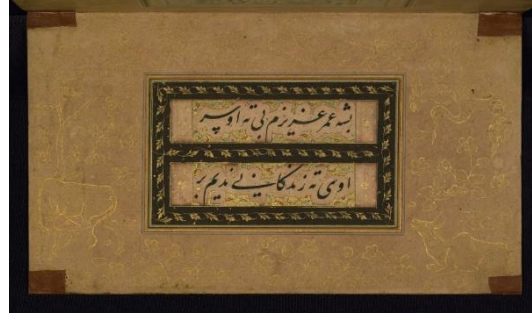 بشه عمر عزیزم بی ته او سر
اوی ته زندکانی ندیم بر